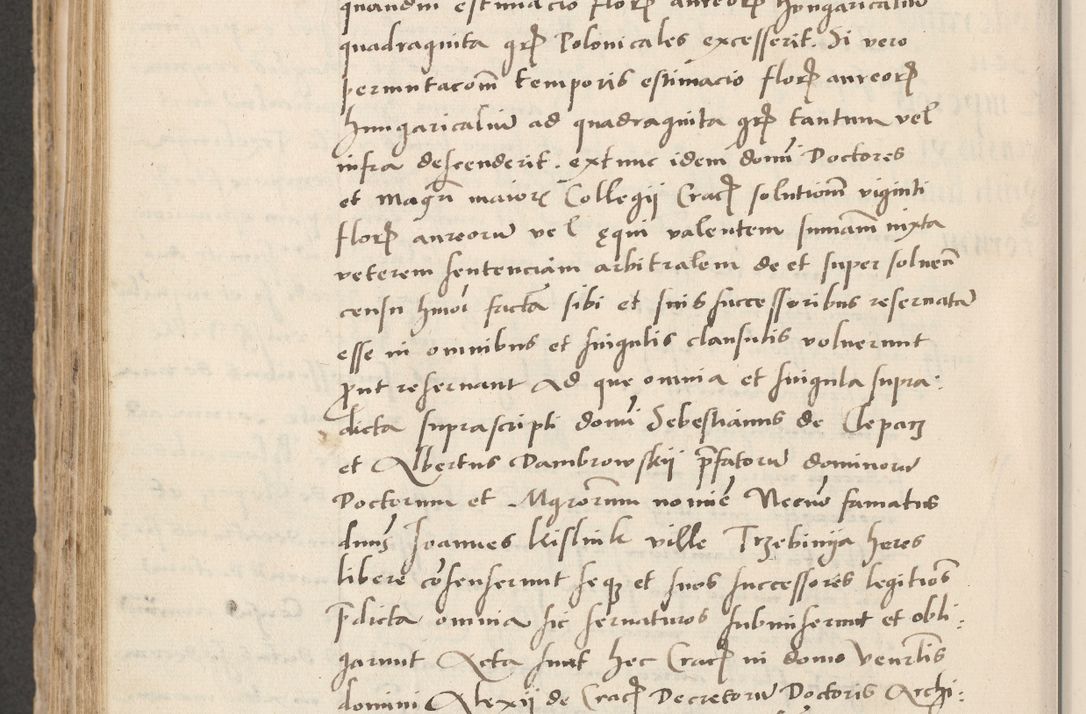 quamdiu estimacio floꝝ aureoꝝ hungaricaliū
quadraginta gꝝ Polonicales excesserit. Si vero
permutacōm temporis estimacio floꝝ aureoꝝ
hungaricaliū ad quadraginta gꝝ tantum vel
infra descenderit. extunc idem domi Doctores
et Magrī maiorꝭ Collegij Cracꝭ solutiom viginti
floꝝ aureorū vel ęqui valentem summam iuxta
veterem sentenciam arbitralem de et super soluen
censu hmōi factā sibi et suis successoribus reseruatā
esse in omnibus et singulis clausulis voluerunt
put reseruant Ad que omnia et singula supra:
dicta suprascripti domi Sebestianus de Clepaꝛz
et Albertus Dambrowskij pfatorū dominorū
Doctorum et Mgrorum nomie Necnō famatus
dnus Joannes Kislink ville Trzebinya heres
libere cōsenserunt seqꝫ et suos successores legitios
pdicta omnia sic seruaturos submiserunt et obli:
garunt Acta sunt hec Cracꝭ in domo Venrlis
domini Alexij de Cracꝭ Decretorū Doctoris Archi: